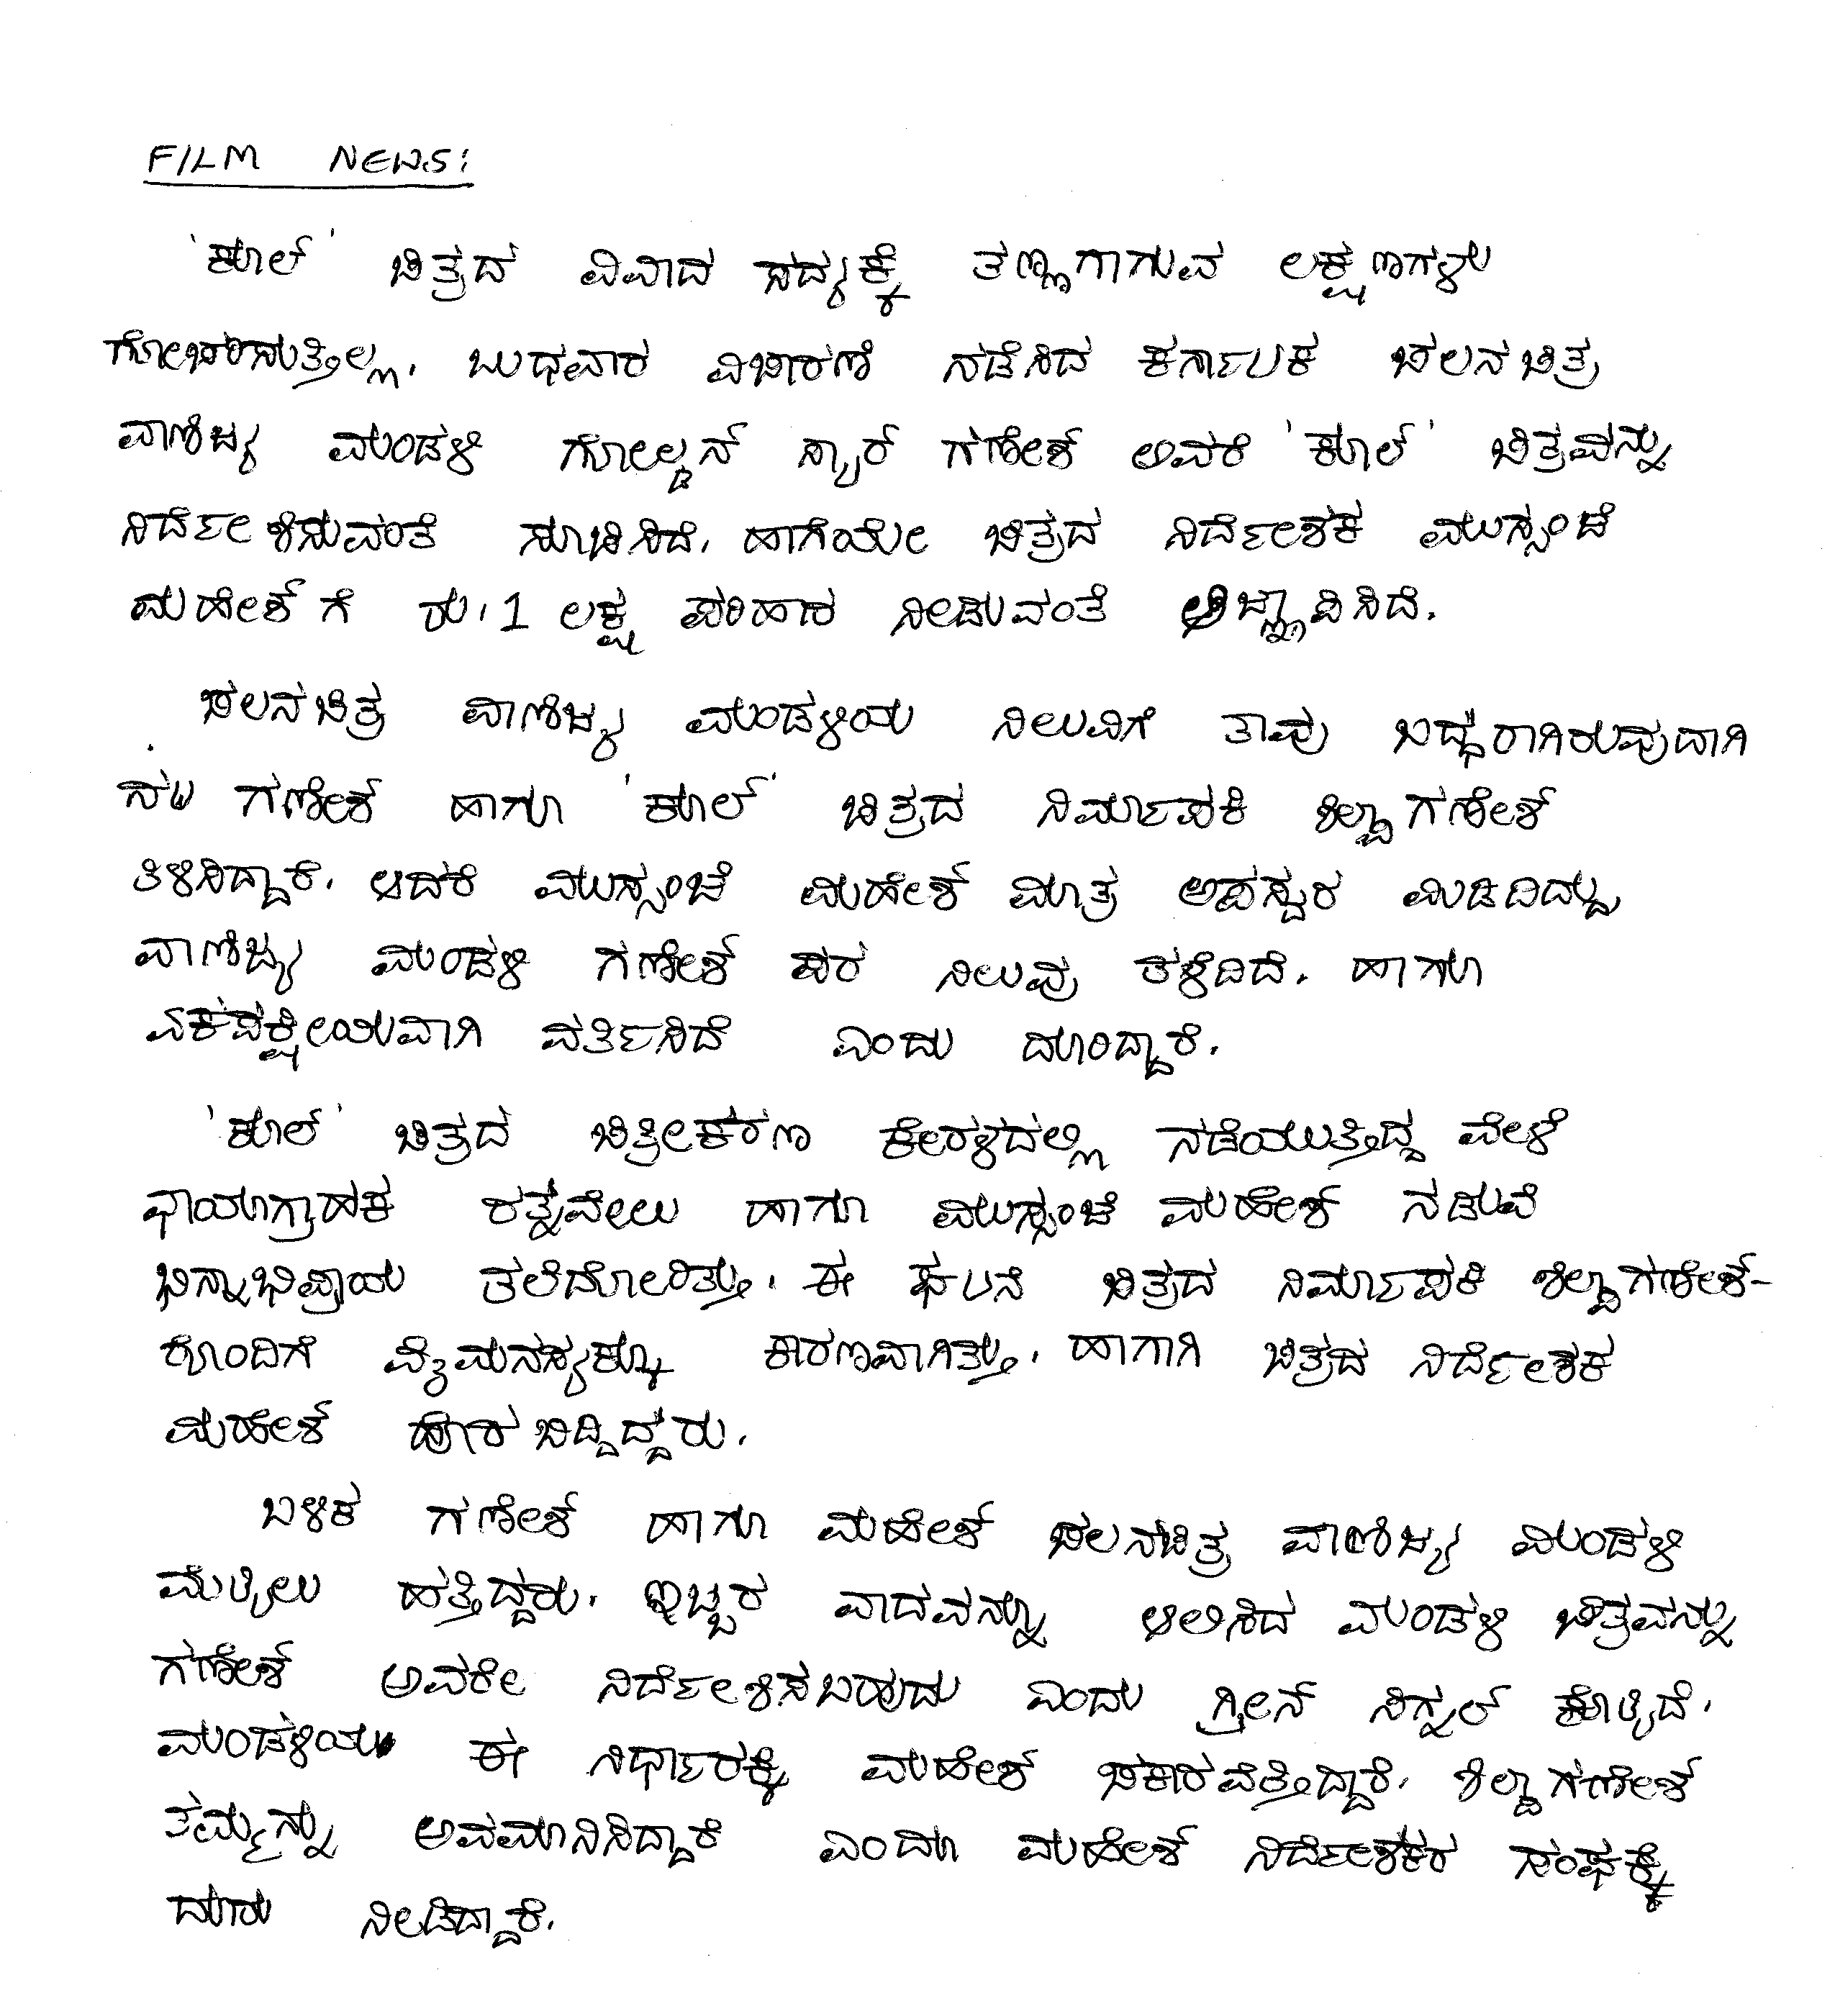 FILM NEWS:
'ಕೂಲ್' ಚಿತ್ರದ ವಿವಾದ ಸದ್ಯಕ್ಕೆ ತಣ್ಣಗಾಗುವ ಲಕ್ಷಣಗಳು
ಗೋಚರಿಸುತ್ತಿಲ್ಲ. ಬುಧವಾರ ವಿಚಾರಣೆ ನಡೆಸಿದ ಕರ್ನಾಟಕ ಚಲನಚಿತ್ರ
ವಾಣಿಜ್ಯ ಮಂಡಳಿ ಗೋಲ್ಡನ್ ಸ್ಟಾರ್ ಗಣೇಶ್ ಅವರೆ 'ಕೂಲ್' ಚಿತ್ರವನ್ನು
ನಿರ್ದೇಶಿಸುವಂತೆ ಸೂಚಿಸಿದೆ. ಹಾಗೆಯೇ ಚಿತ್ರದ ನಿರ್ದೇಶಕ ಮುಸ್ಸಂಜೆ
ಮಹೇಶ್ ಗೆ ರು.1 ಲಕ್ಷ ಪರಿಹಾರ ನೀಡುವಂತೆ ಆಜ್ಞಾಪಿಸಿದೆ.
ಚಲನಚಿತ್ರ ವಾಣಿಜ್ಯ ಮಂಡಳಿಯ ನಿಲುವಿಗೆ ತಾವು ಬದ್ಧರಾಗಿರುವುದಾಗಿ
ನಟ ಗಣೇಶ್ ಹಾಗೂ 'ಕೂಲ್' ಚಿತ್ರದ ನಿರ್ಮಾಪಕಿ ಶಿಲ್ಪಾಗಣೇಶ್
ತಿಳಿಸಿದ್ದಾರೆ. ಆದರೆ ಮುಸ್ಸಂಜೆ ಮಹೇಶ್ ಮಾತ್ರ ಅಪಸ್ವರ ಮಿಡಿದಿದ್ದು
ವಾಣಿಜ್ಯ ಮಂಡಳಿ ಗಣೇಶ್ ಪರ ನಿಲುವು ತಳೆದಿದೆ. ಹಾಗೂ
ಏಕಪಕ್ಷೀಯವಾಗಿ ವರ್ತಿಸಿದೆ ಎಂದು ದೂರಿದ್ದಾರೆ.
'ಕೂಲ್' ಚಿತ್ರದ ಚಿತ್ರೀಕರಣ ಕೇರಳದಲ್ಲಿ ನಡೆಯುತ್ತಿದ್ದ ವೇಳೆ
ಛಾಯಾಗ್ರಾಹಕ ರತ್ನವೇಲು ಹಾಗೂ ಮುಸ್ಸಂಜೆ ಮಹೇಶ್ ನಡುವೆ
ಭಿನ್ನಾಭಿಪ್ರಾಯ ತಲೆದೋರಿತ್ತು. ಈ ಘಟನೆ ಚಿತ್ರದ ನಿರ್ಮಾಪಕಿ ಶಿಲ್ಪಾಗಣೇಶ್-
ರೊಂದಿಗೆ ವೈಮನಸ್ಯಕ್ಕೂ ಕಾರಣವಾಗಿತ್ತು. ಹಾಗಾಗಿ ಚಿತ್ರದ ನಿರ್ದೇಶಕ
ಮಹೇಶ್ ಹೊರಬಿದ್ದಿದ್ದರು.
ಬಳಿಕ ಗಣೇಶ್ ಹಾಗೂ ಮಹೇಶ್ ಚಲನಚಿತ್ರ ವಾಣಿಜ್ಯ ಮಂಡಳಿ
ಮೆಟ್ಟಿಲು ಹತ್ತಿದ್ದರು. ಇಬ್ಬರ ವಾದವನ್ನೂ ಆಲಿಸಿದ ಮಂಡಳಿ ಚಿತ್ರವನ್ನು
ಗಣೇಶ್ ಅವರೇ ನಿರ್ದೇಶಿಸಬಹುದು ಎಂದು ಗ್ರೀನ್ ಸಿಗ್ನಲ್ ಕೊಟ್ಟಿದೆ.
ಮಂಡಳಿಯ ಈ ನಿರ್ಧಾರಕ್ಕೆ ಮಹೇಶ್ ಚಕಾರವೆತ್ತಿದ್ದಾರೆ. ಶಿಲ್ಪಾಗಣೇಶ್
ತಮ್ಮನ್ನು ಅವಮಾನಿಸಿದ್ದಾರೆ ಎಂದೂ ಮಹೇಶ್ ನಿರ್ದೇಶಕರ ಸಂಘಕ್ಕೆ
ದೂರು ನೀಡಿದ್ದಾರೆ.